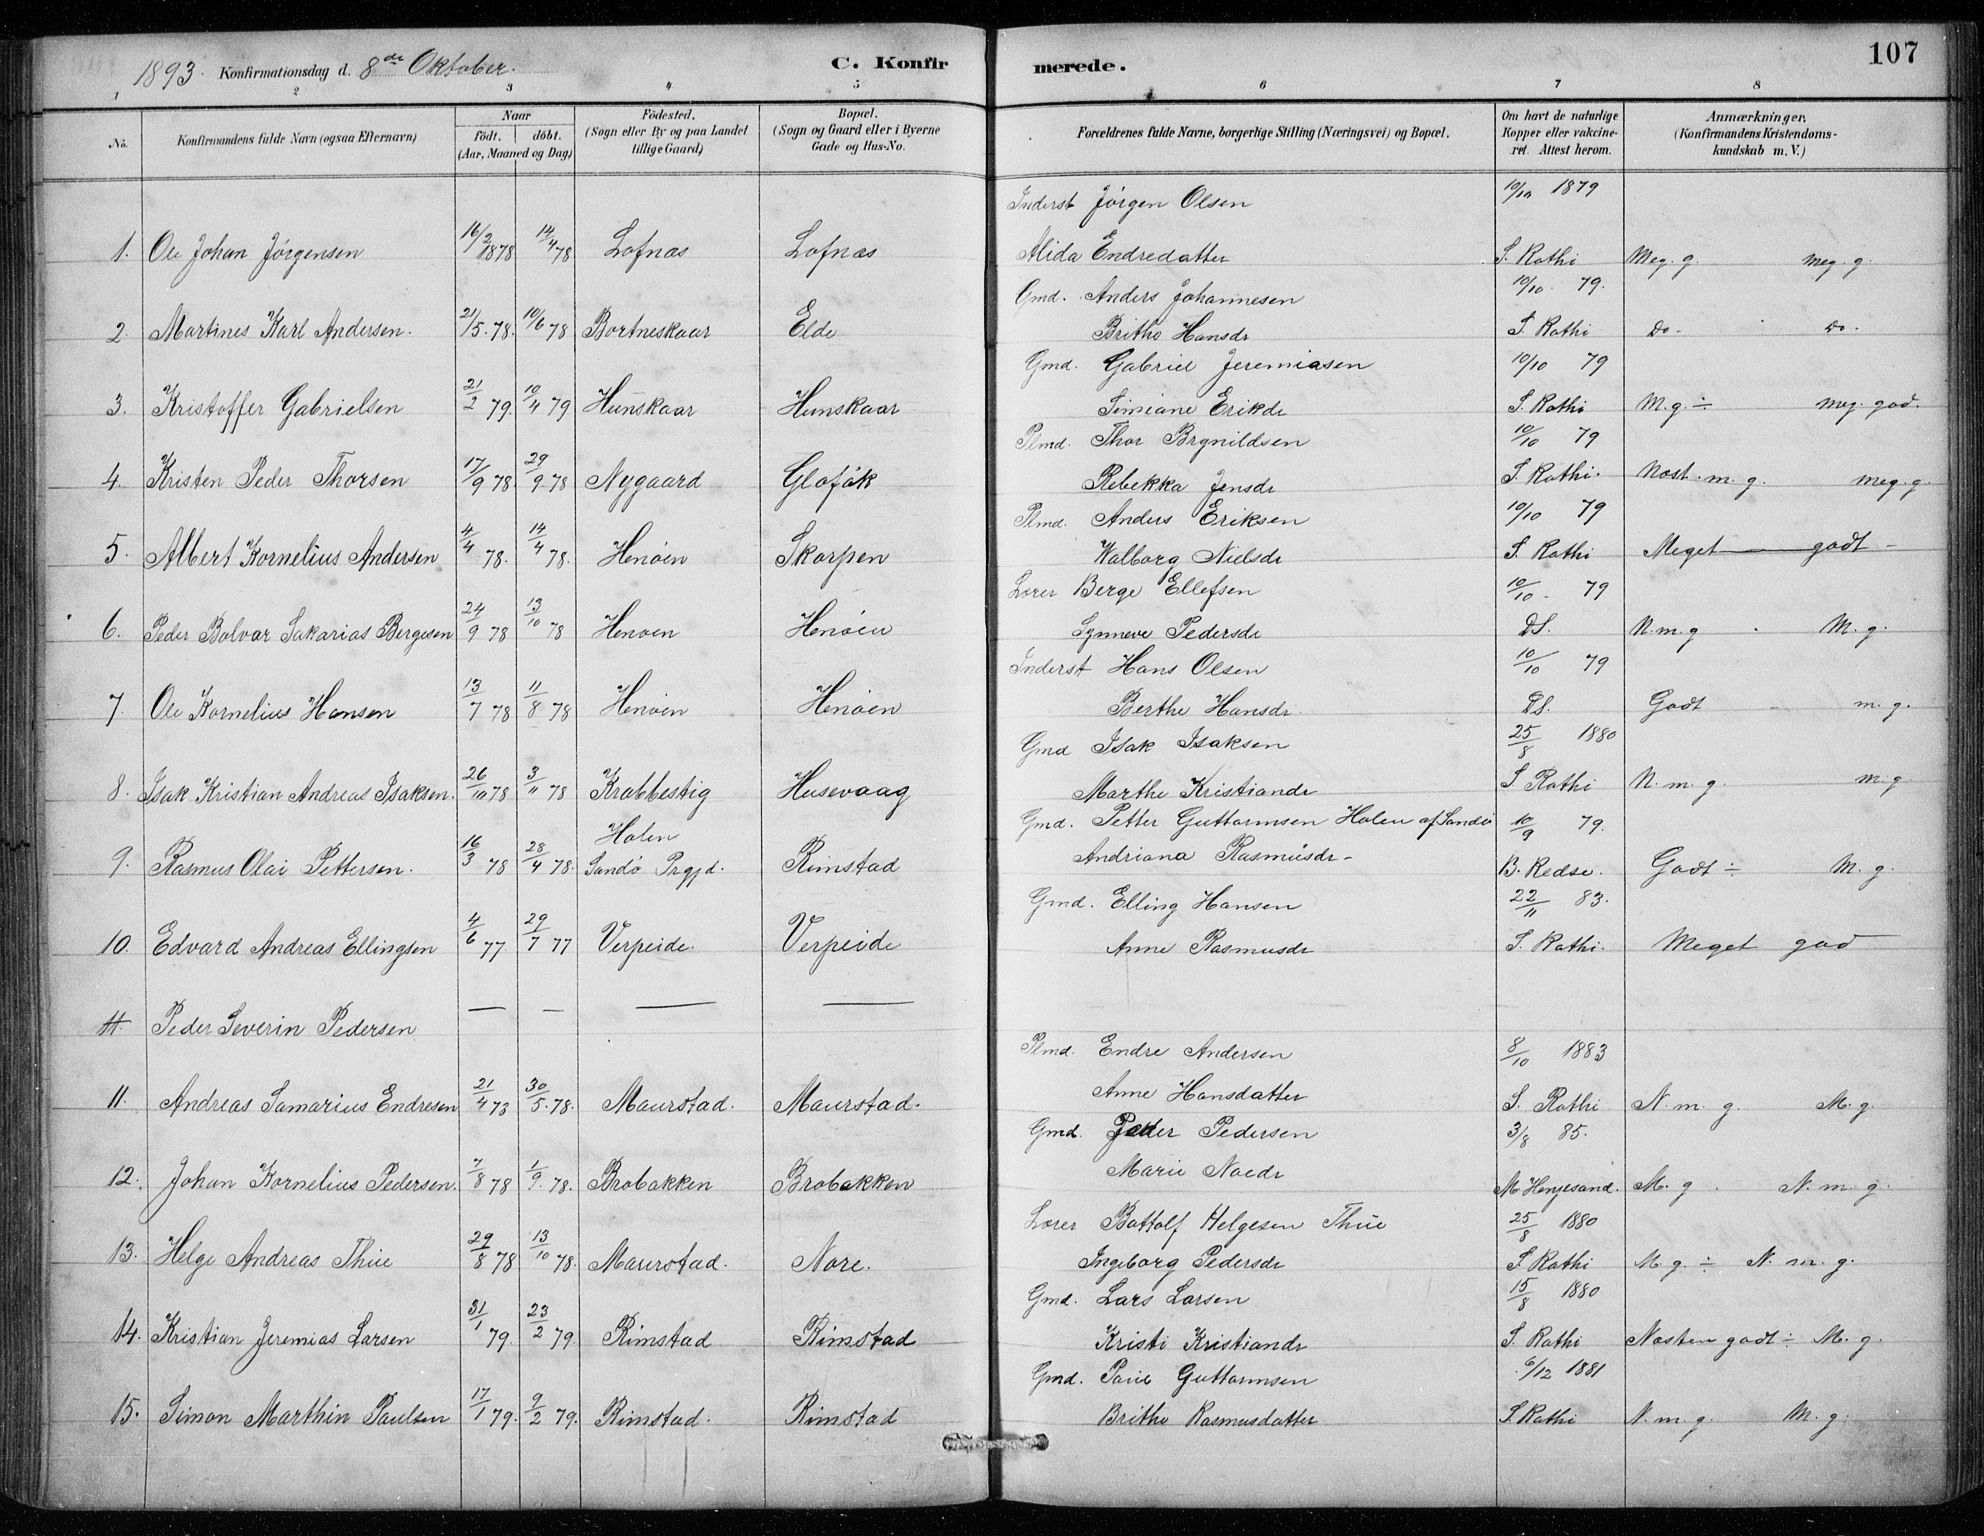 1893. Konfirmationsdag d. 8de Oktober. C. Konfirmerede. 107
1 2 3 4 5 6 7 8
No. Konfirmandens fulde Navn (ogsaa Efternavn) Naar födt. döbt. (Aar, Maaned og Dag) Födested. (Sogn eller By og paa Landet tillige Gaard) Bopæl. (Sogn og Gaard eller i Byerne Gade og Hus-No. Forældrenes fulde Navne, borgerlige Stilling (Næringsvei) og Bopæl. Om havt de naturlige Kopper eller vakcineret. Attest herom. Anmærkninger. (Konfirmandens Kristendomskundskab m. V.)
Inderst Jörgen Olsen 10/10 1879
1. Ole Johan Jørgensen 16/2 1878 14/4 78 Lofnæs Lofnæs Alida Endredatter S. Rathi Meg. g. meg. g.
Gmd. Anders Johannesen 10/10. 79.
2. Martines Karl Andersen. 21/5. 78. 10/6 78 Bortneskaar Elde Brithe Hansdr S. Rathi Do. Do.
Gmd. Gabriel Jeremiasen 10/10 79
3. Kristoffer Gabrielsen 21/2 79. 10/4 79 Hunskaar Hunskaar Simiane Erikdr S. Rathi M. g. ÷ meg. god.
Plmd. Thor Brynildsen 10/10 79
4. Kristen Peder Thorsen 17/9 78. 29/9. 78 Nygaard Glofåk Rebekka Jensdr S. Rathi. Næst. m. g. meg. g.
Plmd. Anders Eriksen 10/10 79
5. Albert Kornelius Andersen 4/4 78. 14/4 78. Henøen Skorpen Walborg Nielsdr S. Rathi Meget — godt —
Lærer Berge Ellefsen 10/10. 79
6. Peder Bolvar Sakarias Bergesen 24/9 78 13/10 78 Henøen Henøen Synneve Pedersdr DS. N. m. g. M. g.
Inderst Hans Olsen 10/10 79
7. Ole Kornelius Hansen 13/7 78 11/8 78 Henøen Henøen Berthe Hansdr. DS. Godt m. g.
Gmd Isak Isaksen 25/8 1880
8. Isak Kristian Andreas Isaksen. 26/10 78 3/11 78 Krabbestig Husevaag Marthe Kristiandr S Rathi N. m. g. m. g
Holen Gmd. Petter Guttormsen Holen af Sandö 10/9 79.
9. Rasmus Olai Pettersen. 16/3 78 28/4 78. Sandö Prgjd. Rimstad Andriana Rasmusdr- B. Redse. Godt ÷ M. g.
Gmd. Elling Hansen 22/11 83.
10. Edvard Andreas Ellingsen 4/6 77. 29/7 77 Verpeide. Verpeide Anne Rasmusdr S. Rathi. Meget god
11. Peder Severin Pedersen — — — —
Plmd. Endre Andersen 8/10 1883
11. Andreas Samarius Endresen 21/4 78 30/5. 78. Maurstad. Maurstad. Anne Hansdatter S. Rathi N. m. g. M. g.
Gmd. Peder Pedersen 3/8 85.
12. Johan Kornelius Pedersen. 7/8 78 1/9. 78. Brobakken Brobakken Marie Noedr M Henjesand. M. g. N. m. g.
Lærer Bottolf Helgesen Thue 25/8 1880
13. Helge Andreas Thue 29/8 78 13/10 78. Maurstad. Nore. Ingeborg Pedersdr S. Rathi M. g. ÷ N. m. g.
Gmd. Lars Larsen 15/8 1880
14. Kristian Jeremias Larsen 31/1 79. 23/2 79. Rimstad Rimstad Kristi Kristiandr S. Rathi Næsten godt ÷ M. g.
Gmd. Paul Guttormsen 6/12 1881
15. Simon Marthin Paulsen 17/1 79. 9/2 79. Rimstad. Rimstad Brithe Rasmusdatter S. Rathi N. m. g. M. g.